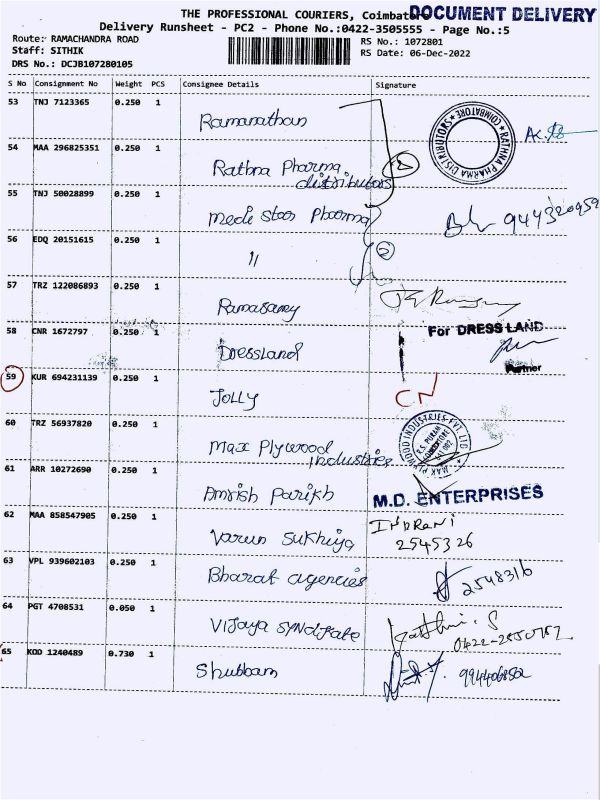 THE PROFESSIONAL COURIERS, Coimbatore
DOCUMENT DELIVERY
Delivery Runsheet - PC2 - Phone No.:0422-3505555 - Page No.:5
Route: RAMACHANDRA ROAD
RS No.: 1072801
Staff: SITHIK
RS Date: 06-Dec-2022
DRS No.: DCJB107280105
S No Consignment No Weight PCS Consignee Details Signature
53 TNJ 7123365 0.250 1 Ramanathan
RATHNA PHARMA DISTRIBUTORS COIMBATORE
54 MAA 296825351 0.250 1 Rathna Pharma distributors 2
55 TNJ 50028899 0.250 1 Medi star Pharma
56 EDQ 20151615 0.250 1 11 2
57 TRZ 122086893 0.250 1 Ramasamy
58 CNR 1672797 0.250 1 Dressland For DRESS LAND
Partner
59 KUR 694231139 0.250 1 Jolly CN
60 TRZ 56937820 0.250 1 Max Plywood industries
MAX PLYWOOD INDUSTRIES PVT. LTD
R.S. PURAM
61 ARR 10272690 0.250 1 Amrish Parikh M.D. ENTERPRISES
62 MAA 858547905 0.250 1 Varun Sukhija INDRANI
2545326
63 VPL 939602103 0.250 1 Bharat agencies 2548316
64 PGT 4708531 0.050 1 Vijaya syndicate
65 KOD 1240489 0.730 1 Shubbam